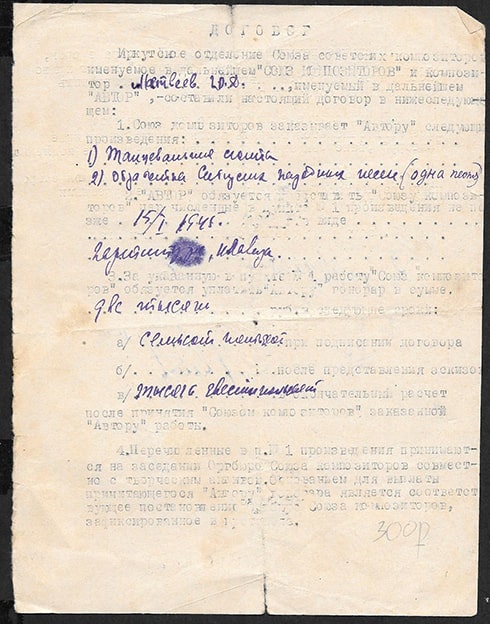 ДОГОВОР
Иркутское отделение Союза советских композиторов
именуемое в дальнейшем "СОЮЗ КОМПОЗИТОРОВ" и компози-
тор Матвеев именуемый в дальнейшем
"АВТОР",-составили настоящий договор в нижеследую-
щем:
1.Союз композиторов заказывает "Автору" следующ
произведения:
1) Танцевальная сюита
2) Обработка народных песен (одна песня)
"АВТОР" обязуется "Союзу компози-
торов" произведения не по
зже 15/I 1941. виде
клавира.
3.За указанную в пункте №1 работу "Союз композито-
ров" обязуется уплатить "Автору" гонорар в сумме.
две тысячи руб. в следующие сроки:
а/ семьсот при подписании договора
б/ после представления эскизов
в/ тысяча окончательный расчет
после принятия "Союзом композиторов" заказанной
"Автору" работы.
4.Перечисленные в п.№1 произведения принимают-
ся на заседании Оргбюро Союза композиторов совмест-
но с творческим активом. Основанием для выплаты
причитающегося "Автору" гонорара является соответст-
вующее постановление Союза композиторов,
зафиксированное в
300р